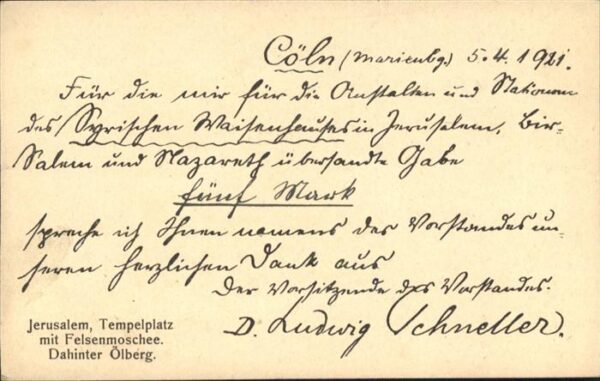 Cöln (Marienbg.) 5.4.1921.
Für die mir für die Anstalten und Stationen
des Syrischen Waisenhauses in Jerusalem, Bir-
Salem und Nazareth übersandte Gabe
fünf Mark
spreche ich Ihnen namens des Vorstandes un-
seren herzlichen Dank aus
Der Vorsitzende des Vorstandes.
D. Ludwig Schneller.
Jerusalem, Tempelplatz
mit Felsenmoschee.
Dahinter Ölberg.